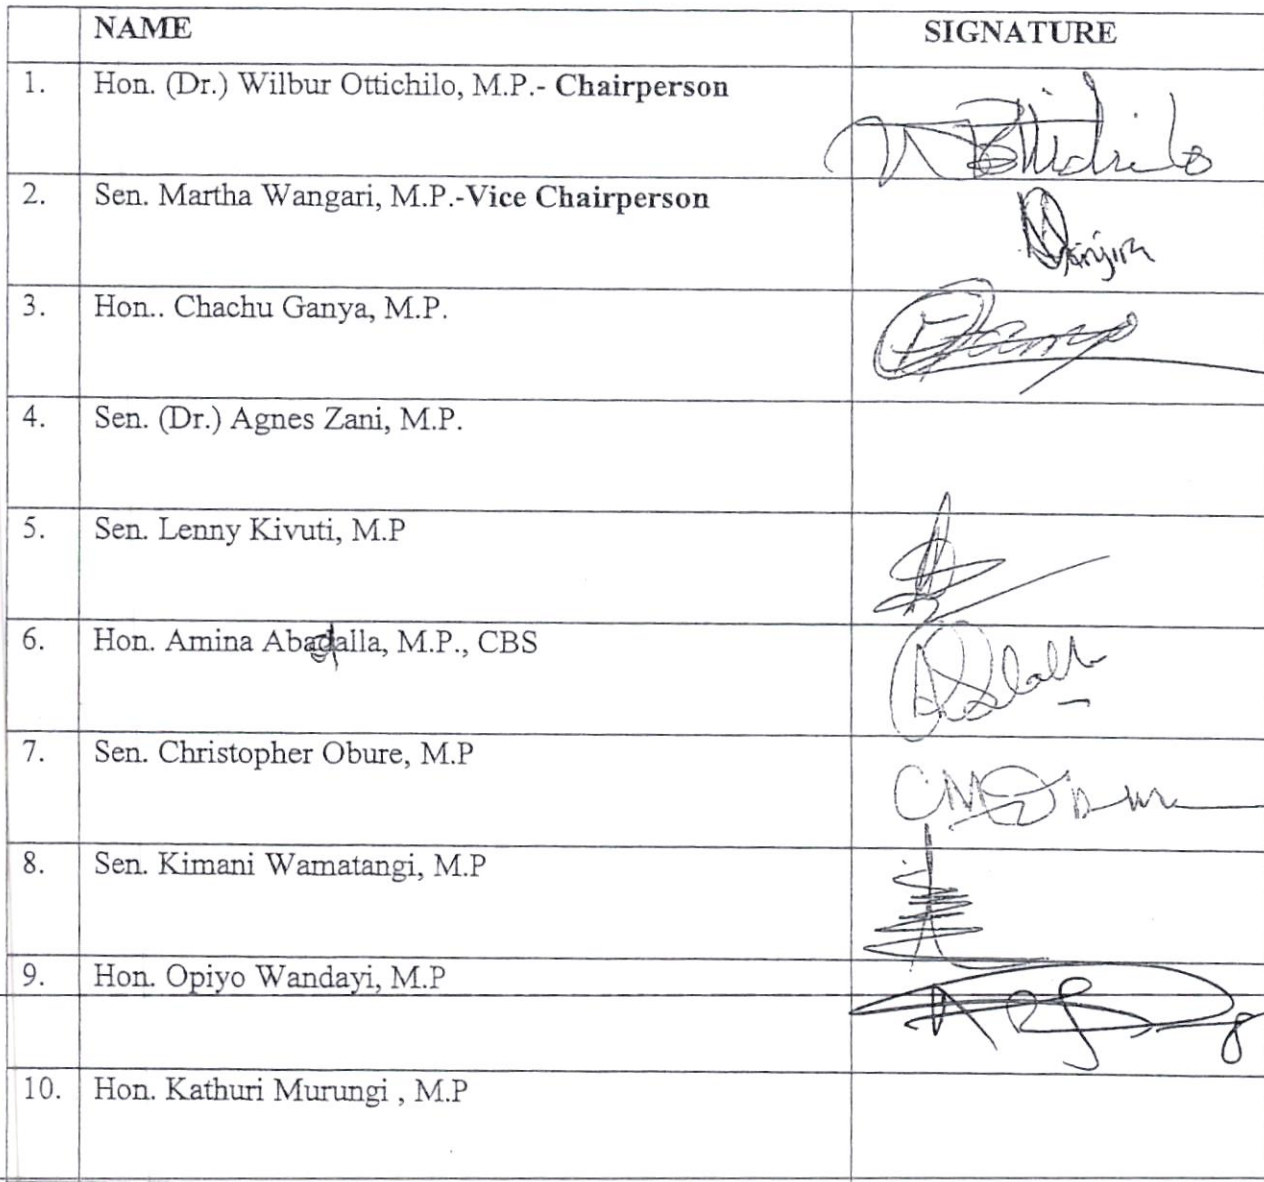 NAME SIGNATURE
1. Hon. (Dr.) Wilbur Ottichilo, M.P.- Chairperson
2. Sen. Martha Wangari, M.P.-Vice Chairperson
3. Hon.. Chachu Ganya, M.P.
4. Sen. (Dr.) Agnes Zani, M.P.
5. Sen. Lenny Kivuti, M.P
6. Hon. Amina Abadalla, M.P., CBS
7. Sen. Christopher Obure, M.P
8. Sen. Kimani Wamatangi, M.P
9. Hon. Opiyo Wandayi, M.P
10. Hon. Kathuri Murungi , M.P